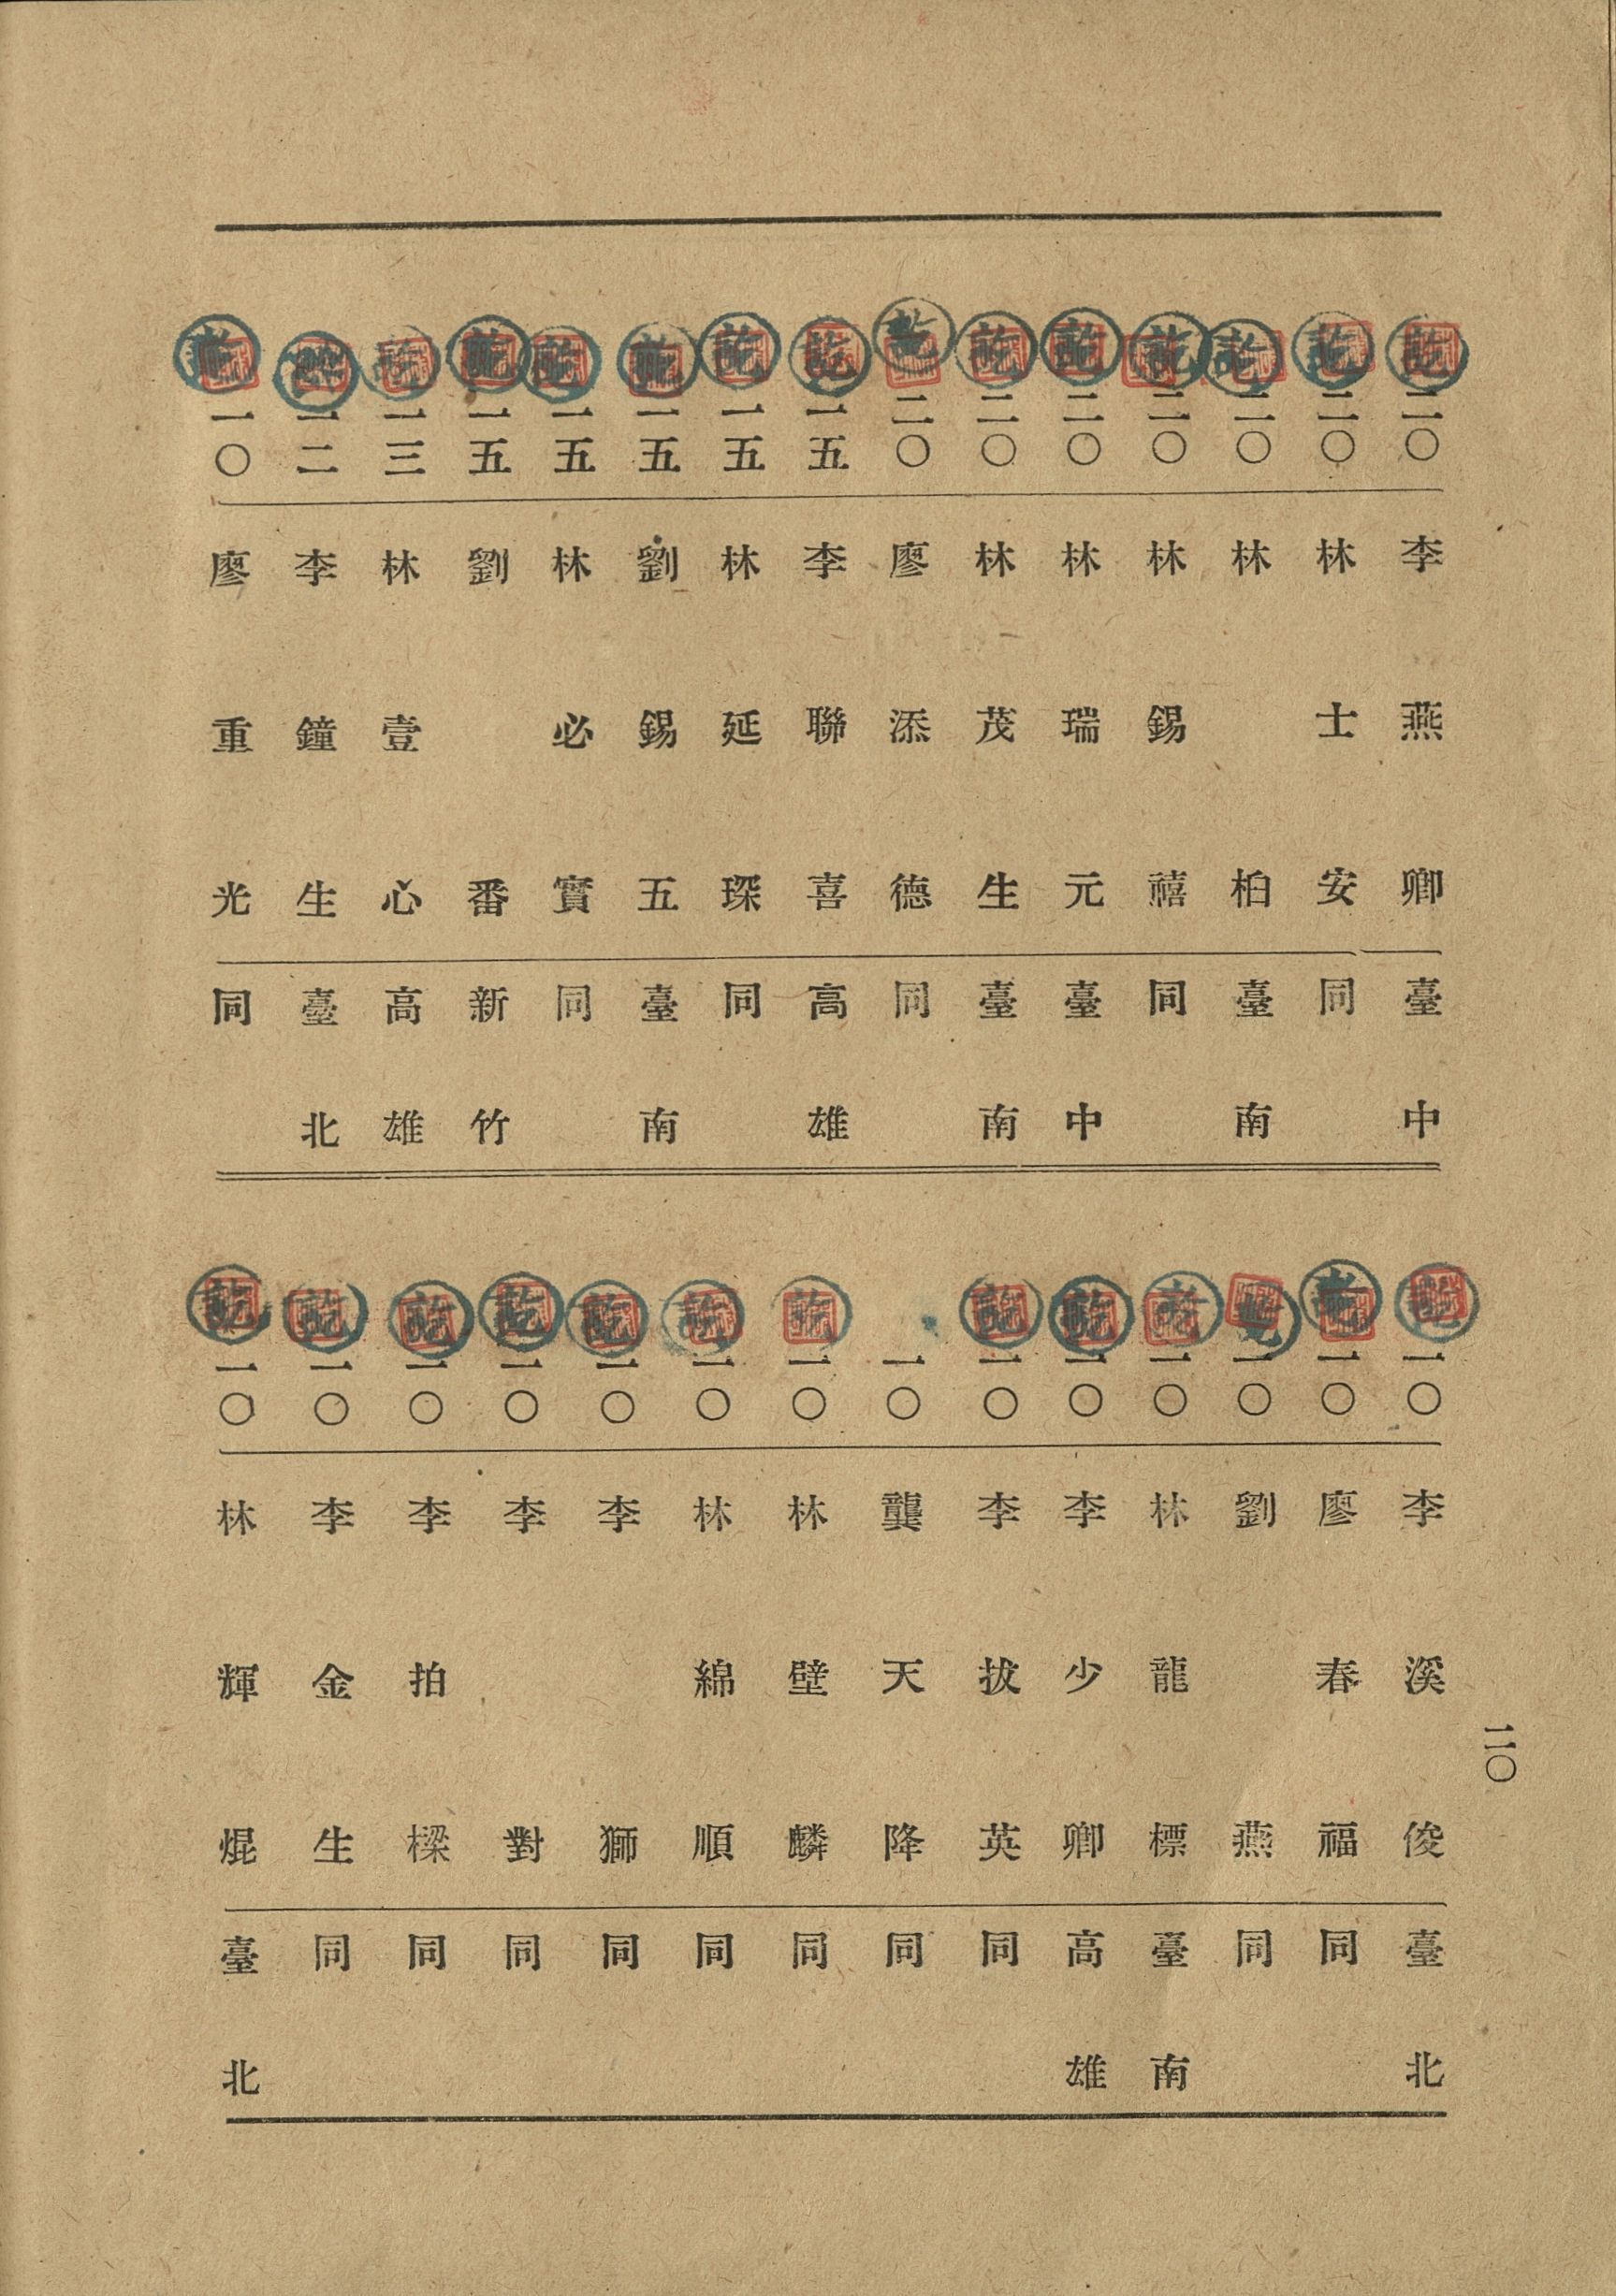 二〇 李燕卿 臺中
二〇 林士安 同
二〇 林柏 臺南
二〇 林錫禧 同
二〇 林瑞元 臺中
二〇 林茂生 臺南
二〇 廖添德 同
一五 李聯喜 高雄
一五 林延琛 同
一五 劉錫五 臺南
一五 林必實 同
一五 劉番 新竹
一三 林壹心 高雄
一二 李鐘生 臺北
一〇 廖重光 同
一〇 李溪俊 臺北
一〇 廖春福 同
一〇 劉燕 同
一〇 林龍標 臺南
一〇 李少卿 高雄
一〇 李拔英 同
一〇 龔天降 同
一〇 林壁麟 同
一〇 林綿順 同
一〇 李獅 同
一〇 李對 同
一〇 李拍樑 同
一〇 李金生 同
一〇 林輝焜 臺北
二〇